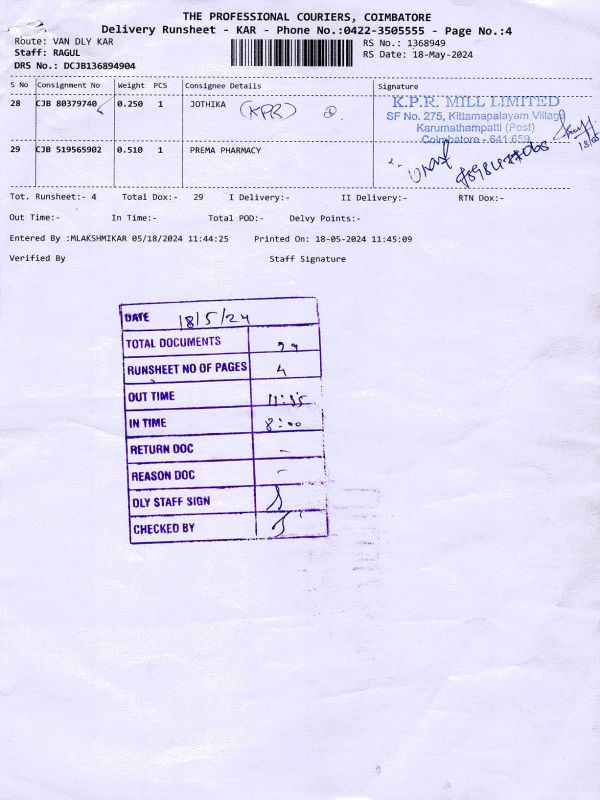 THE PROFESSIONAL COURIERS, COIMBATORE
Delivery Runsheet - KAR - Phone No.:0422-3505555 - Page No.:4
Route: VAN DLY KAR
RS No.: 1368949
Staff: RAGUL
RS Date: 18-May-2024
DRS No.: DCJB136894904
S No Consignment No Weight PCS Consignee Details Signature
28 CJB 80379740 0.250 1 JOTHIKA (KPR)
K.P.R. MILL LIMITED
SF No. 275, Kittamapalayam Village
Karumathampatti (Post)
Coimbatore - 641 659
29 CJB 519565902 0.510 1 PREMA PHARMACY
Tot. Runsheet:- 4 Total Dox:- 29 I Delivery:- II Delivery:- RTN Dox:-
Out Time:- In Time:- Total POD:- Delvy Points:-
Entered By :MLAKSHMIKAR 05/18/2024 11:44:25 Printed On: 18-05-2024 11:45:09
Verified By Staff Signature
DATE 18/5/24
TOTAL DOCUMENTS 29
RUNSHEET NO OF PAGES 4
OUT TIME 11:55
IN TIME 8:00
RETURN DOC -
REASON DOC -
DLY STAFF SIGN
CHECKED BY